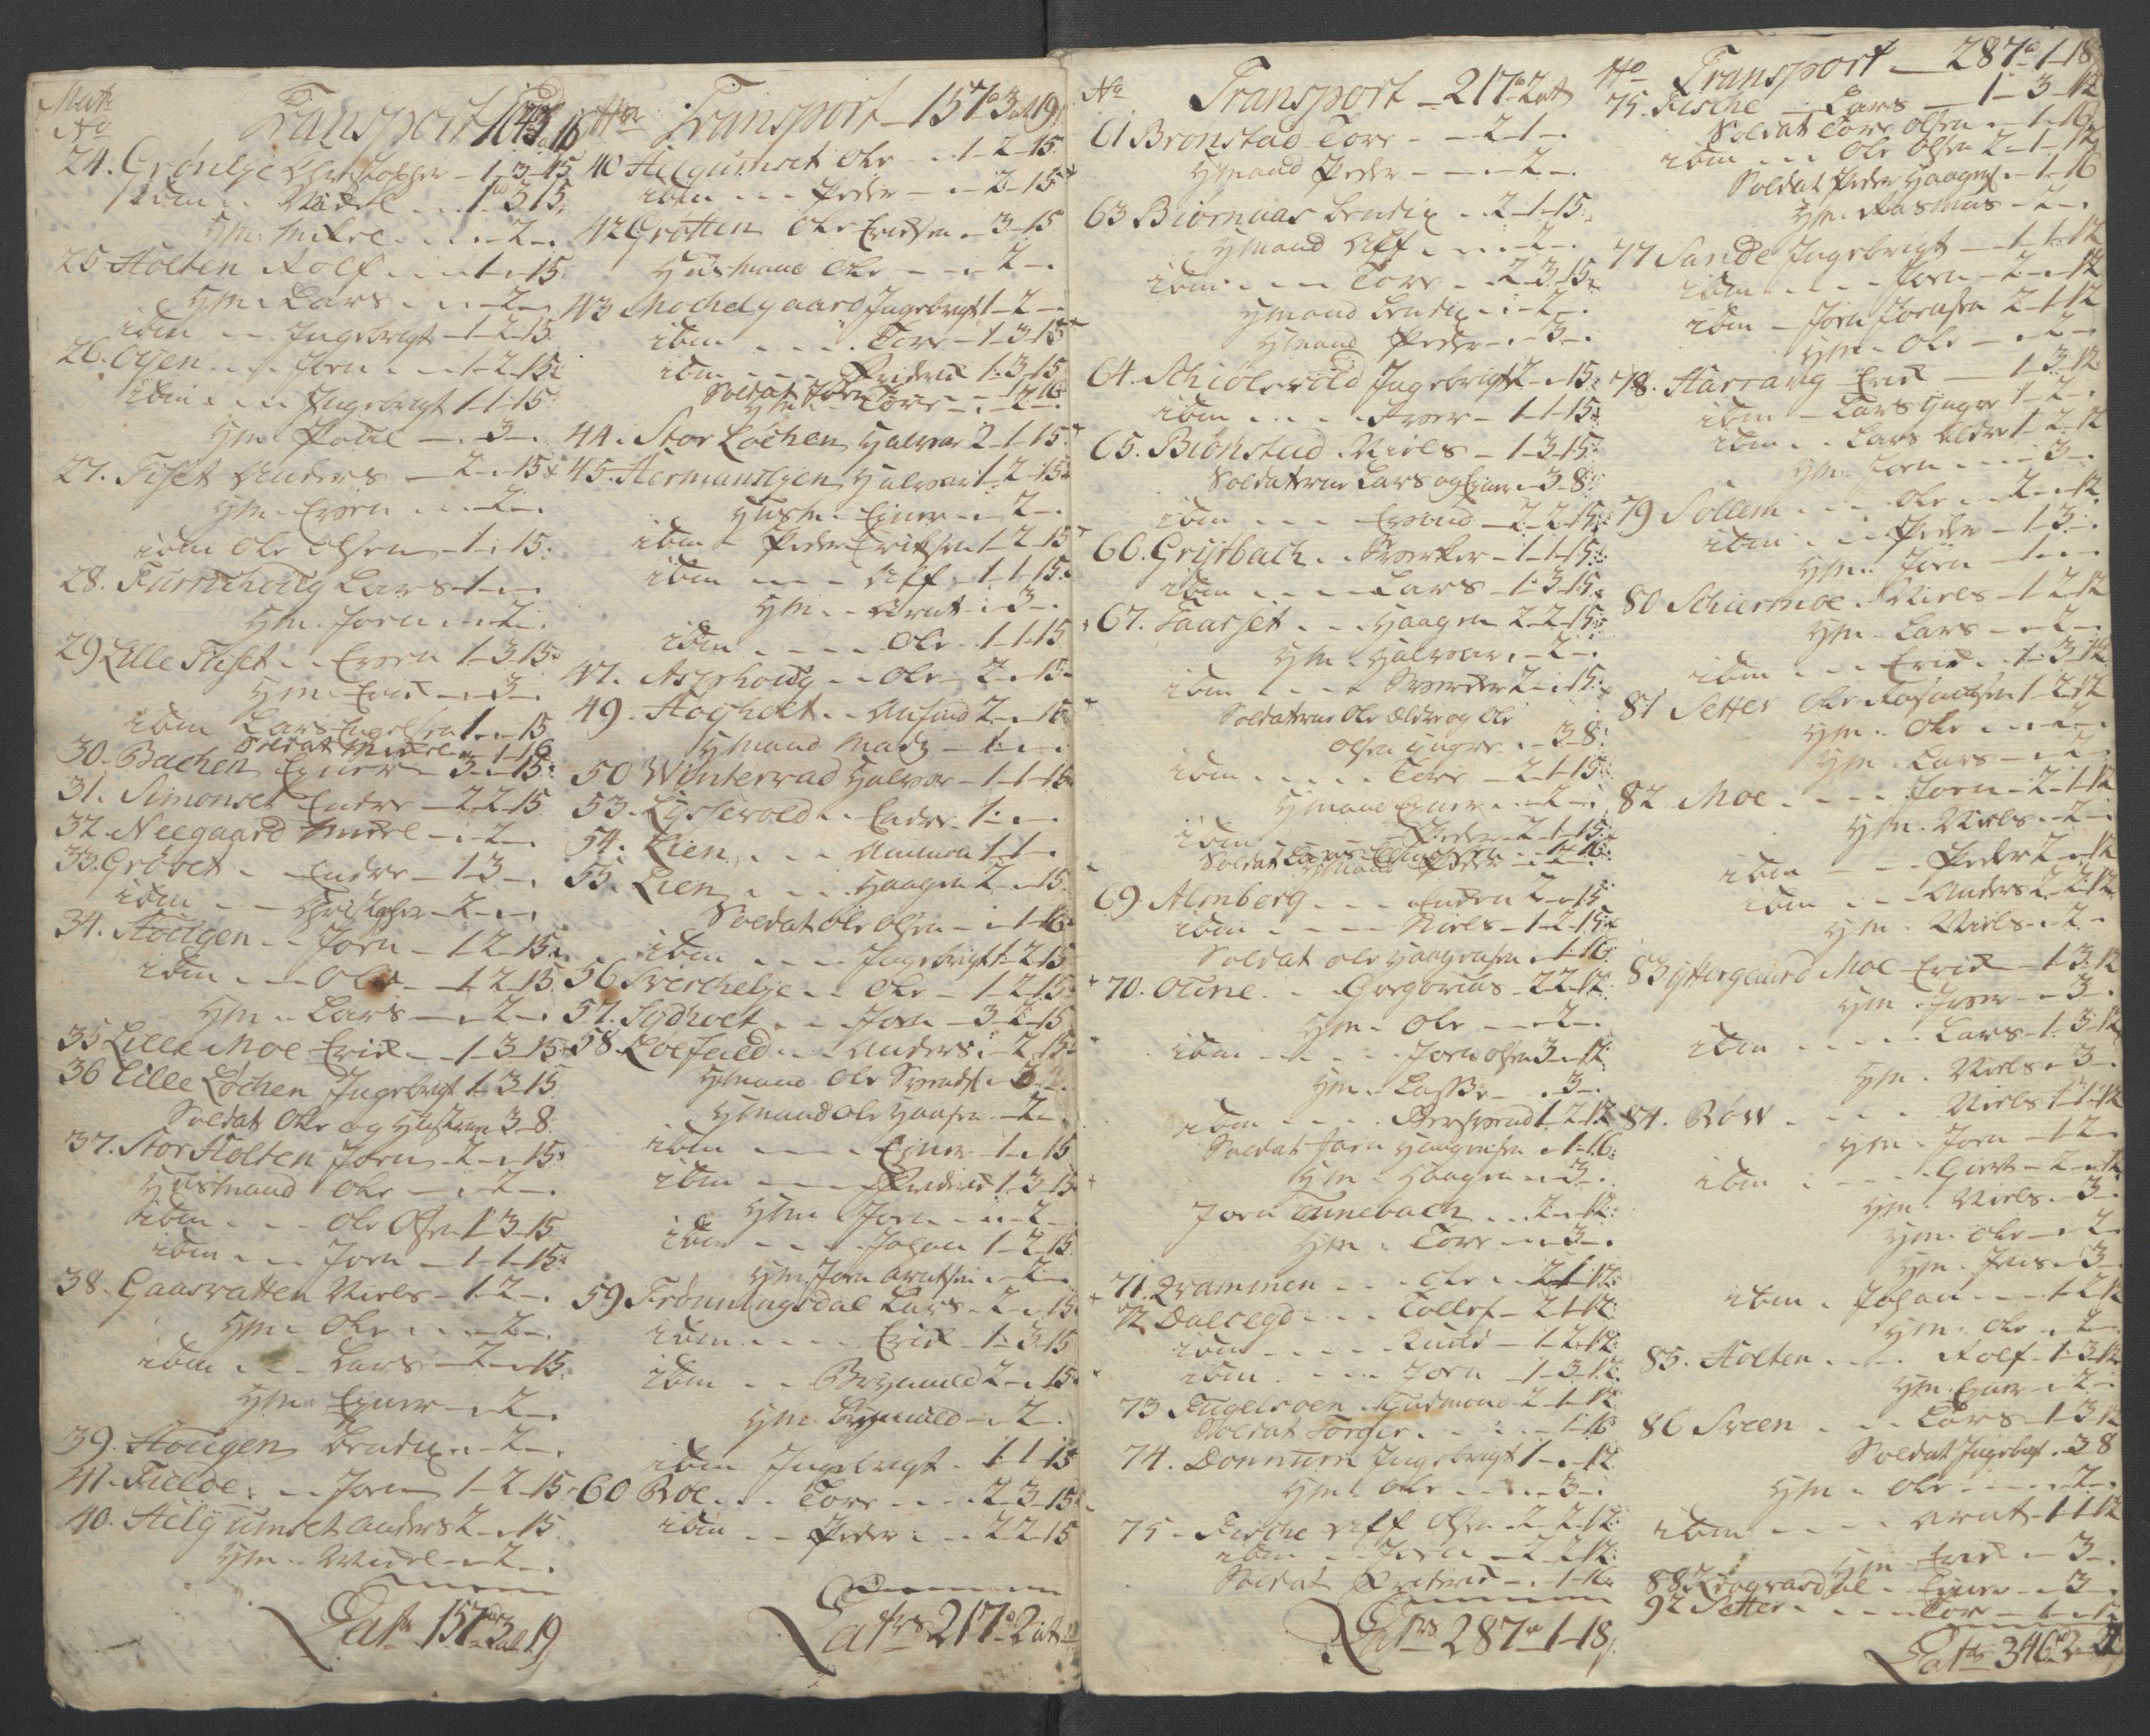 Matr
No
Transport 104 3 16
24. Grönlye Christopher - 1-3-15
idem . . Mikel . . . 1 3 15
Hm. Mikel . . . . 2 - .
25 Holten Rolf . . . 1 . 15.
Hm. Lars . . . - 2 - .
idem . . Ingebrigt - 1-2-15
26. Oyen . . . Jorn . . 1-2-15
idem . . . Ingebrigt 1-1-15
Hm. Poul - . 3 - .
27. Fiset Anders - 2 . . 15
Hm. Even . . . 2 - .
idem Ole Olsen - 1 . 15.
28. Furruhoug Lars - 1 - .
Hm. Jorn . . . 2 .
29 Lille Fiset . . Even 1-3-15
Hm. Erich - . 3 - .
idem Lars Engelsen 1 . . 15
Soldat Mikel . . 1-16
30. Bachen Einer - 3 . . 15
31. Simonset Endre - 2 2 15
32. Neegaard Mikel - . 2 - .
33. Grövet . . Endre - 1 3 - .
idem . . Christopher - 2 - .
34. Hougen . . Jorn - 1 2-15
idem . . - Ole . - 1 2 15
Hm . . Lars - . 2 - .
35 Lille Moe Erich - . 1 3 15
36 Lille Lochen Ingebrigt 1-3-15
Soldat Ole og Hustrue 3-8
37. Stor Holten Jorn - 2 - . 15
Husmand Ole - . - 2 - .
idem . . . Ole Olsen 1 3-15
idem . . . Jorn - 1-1-15
38. Gaasvatten Niels - 1 2 - .
Hm. Ole . . . - 2 - .
idem . . . Lars - 2 - . 15
Hm. Einer - . 2 - .
39. Hougen Bendix . . 2 - .
41. Fielde . . . Jorn 1-2-15
40. Helgumset Anders 2 - . 15
Hm. Mikel - . 2 - .
Lat 157 3 19
No Transport - 157 3 19
40 Helgumset Ole . . 1-2-15
idem . . . Peder - . . 2 . 15
42 Grötten Ole Erichsen . 3-15
Husmand Ole - . . 2 - .
43 Mochelgaard Ingebrigt 1-2 - .
idem . . . . Tore - 1-3-15
idem . . . Friderich 1-3-15
Soldat Jorn . . . 1-16
Hm. . Tore - . 2 - .
44. Stor Lochen Halvor 2-1-15
45. Hermundlyen Halvor 1-2-15
Husm. Einer - . 2 - .
idem - Peder Erichsen 1-2-15
idem . . . - Alf - 1-1-15
Hm . . Arnt . . 3 - .
idem . . . . Ole . . 1-1-15
47. Asphoug . . Ole - 2 . 15
49. Hogholt . . Anfind 2 . . 15
Hmand Mads - 1 . - .
50 Winterrad Halvor - 1-1-15
53. Lyssevold . . Endre . 1 . - .
54. Lien . . . Ammon 1-1 - .
55. Lien . . . Haagen 2 . . 15
Soldat Ole Olsen . . 1-16
idem . . . Ingebrigt 1-2-15
56 Svirchelye . . Ole - 1-2-15
57. Sydhvet . . Jorn - 3-2-15
58. Loefald . . Anders . - 2 15
Hmand Ole Svends . 3 - .
Hmand Ole Haagen . . 2 - .
idem . . . - Einer - 1 . 15
idem . . . Friderich 1 3-15
Hm. Jorn . . . - 2 - .
idem . . . . Johan 1-2-15
Hm. Jorn Arntsen . . 2 - .
59 Frönningsdal Lars . 2 . . 15
idem . . . . Erich 1-3-15
idem . . Brynnild 2 - . 15
Hm. Brynnild - . 2 - .
idem Ingebrigt . . 1 1 15
60 Roe . . . Tore . . . 2-3-15
idem . . - Peder . . . 2 2-15
Laters 217 2
No Transport - 217 2
61 Bronstad Tore . - 2-1 - .
Hmand Peder - - . - 2 - .
63 Biørnaas Bendix . . 2-1-15
Hmand Alf . . . . - 2 - .
idem . . . . Tore - 2 3 15
Hmand Bendix . . . - 2 - .
Hmand Peder - . . 3 - .
64. Schiölsvold Ingebrigt 2 - . 15
idem . . . . Iver - 1-1-15
65. Biönstad . Niels - 1-3-15
Soldaterne Lars og Einer . 3-8
idem . . . . Eivind - 2-2-15
66. Grystbach . . Sverker - 1-1-15
idem . . . . Lars - 1-3-15
67. Faarset . . . Haagen 2-2-15
Hm. Halvor . - 2 - .
idem . . . . Sverder 2 - . 15
Soldaterne Ole Ældre og Ole
Olsen yngre . . 3 8.
idem . . . . . Tore - 2-1-15
Hmand Einer . . . 2 - .
idem . . . . Peder - 2-1-15
Soldat Lars . . . 1-16
Hmand Peder . . 2 - .
69. Almberg . . . Endre 2 . . 15
idem . . . . Niels - 1-2-15
Soldat Ole Haagensen . 1-16
70. Oune . . . Gregorius - 2 2-12
Hm. Ole . . - 2 - .
idem . . . . . Jorn Olsen 3 . . 12
Hm. Lasse - . 3 - .
idem . . . . . Bersvend 1-2-12
Soldat Jorn Haagensen . 1-16
Hm . . Haagen . . 3 - .
Jorn Tunebach . . . 2 - . 12
Hm . . Tore - . . 3 - .
71. Drammen . . . Ole . . 2-1-12
72 Dalsegd . . . Tollef - 2-1-12
idem . . . . . Knud - 1-2-12
idem . . . . . Jorn - 1-3-12
73 Fugelsoen . Gudmund 2-1-12
Soldat Torger . . . . . 1-16
74. Donnum Ingebrigt 1 - . 12
Hm. Ole . . . . . 3 - .
75 - Fische Alf Olsen - 2-2-12
idem . . Jorn - 2 2-12
Soldat Friderich - . 1-16
Laters 287 1-18
No Transport - 287 1-18
75. Fische . . Lars . . 1-3-12
Soldat Tore Olsen . . 1-16
idem . . . Ole Olsen 2-1-12
Soldat Peder Haagens . 1-16
Hm. Rasmus - 2 - .
77 Sande Ingebrigt - 1-1-12
idem . . . . Jorn - 2 . . 12
idem - Jorn Jornsen 2-1-12
Hm. Ole - . . 2 - .
78. Harrang Erich - 1-3-12
idem - Lars yngre 1-2 - .
idem . . Lars Ældre 1-2-12
Hm. Jorn . . . . 3 - .
79 Sollem . . . Ole . . . 2 . . 12
idem . . . Peder - 1-3 - .
Hm. Jorn . - 1 . . -
80 Schiermoe . Niels - 1 2 12
Hm. Lars - . 2 - .
idem . . . Erich . . 1-3-12
81 Setter Ole Rasmusen 1-2-12
Hm. Ole . . . 2 - .
Hm. Lars - . . 2 - .
82 Moe . . . . Jorn - 2-1-12
Hm. Niels . . 2 - .
idem . . Peder 2 . . 12
idem . . . Anders 2-2-12
Hm. Niels . . 2 -
83 Yttergaard Moe Erich - 1-3-12
Hm. Iver - . 3 - .
idem . . . . . Lars - 1-3-12
Hm. Niels . . 3 - .
84. Röw . . . . Niels 1-1-12
Hm. Jorn - 1 2 - .
idem . . . . Giert - 2 . . 12
Hm. Niels . . 3 .
Hm. Ole - . 2 -
Hm. Jens . . 3 -
idem . Johan . . - 1-2-12
Hm. Ole . . 2 -
85. Holten . . . . Rolf - 1-3-12
Hm. Einer - . 2 -
86 Sveen . . . . Lars - 1-3-12
Soldat Ingebrigt . 3 8
Hm . . Ole - . . - . 2 - .
idem . . . . Arnt - 1-1-12
Hm. Erich . - 3 - .
88. . . Einer . . 3 - .
92 Setter . . . . Tore - 1 . . 12
Lat 346 2